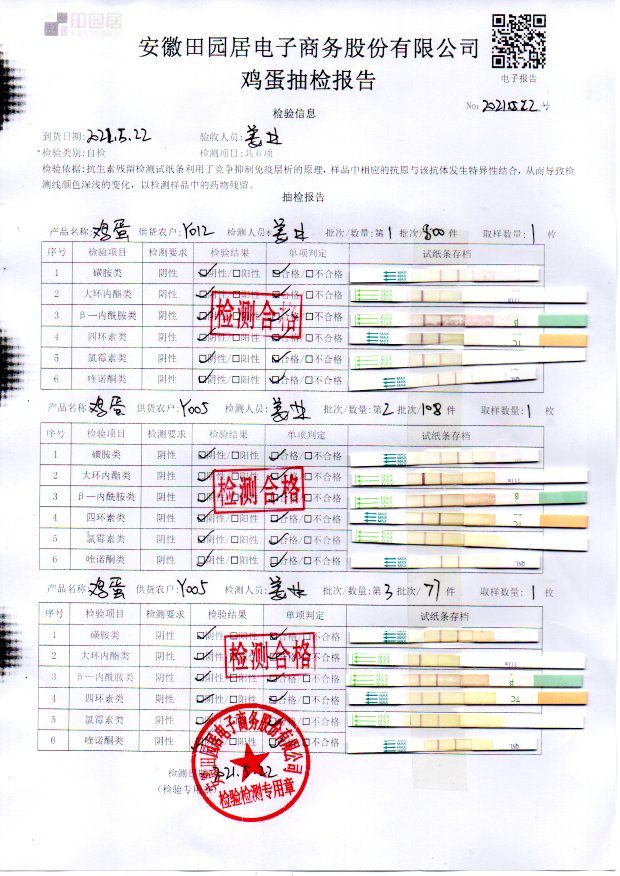 田园居
TIAN YUAN JU
安徽田园居电子商务股份有限公司
鸡蛋抽检报告
电子报告
检验信息
No: 20210522 号
到货日期: 2021.5.22 验收人员:
*检验类别:自检 检测项目:共6项
检验依据:抗生素残留检测试纸条利用了竞争抑制免疫层析的原理，样品中相应的抗原与该抗体发生特异性结合，从而导致检
测线颜色深浅的变化，以检测样品中的药物残留。
抽检报告
产品名称: 鸡蛋 供货农户: Y012 检测人员: 批次/数量:第 1 批次/ 800 件 取样数量: 1 枚
序号 检验项目 检测要求 检验结果 单项判定 试纸条存档
1 磺胺类 阴性 ☑阴性/□阳性 ☑合格/□不合格
2 大环内酯类 阴性 ☑阴性/□阳性 ☑合格/□不合格
3 β—内酰胺类 阴性 ☑阴性/□阳性 ☑合格/□不合格
4 四环素类 阴性 ☑阴性/□阳性 ☑合格/□不合格
5 氯霉素类 阴性 ☑阴性/□阳性 ☑合格/□不合格
6 喹诺酮类 阴性 ☑阴性/□阳性 ☑合格/□不合格
检测合格
产品名称: 鸡蛋 供货农户: Y005 检测人员: 批次/数量:第 2 批次/ 108 件 取样数量: 1 枚
序号 检验项目 检测要求 检验结果 单项判定 试纸条存档
1 磺胺类 阴性 ☑阴性/□阳性 ☑合格/□不合格
2 大环内酯类 阴性 ☑阴性/□阳性 ☑合格/□不合格
3 β—内酰胺类 阴性 ☑阴性/□阳性 ☑合格/□不合格
4 四环素类 阴性 ☑阴性/□阳性 ☑合格/□不合格
5 氯霉素类 阴性 ☑阴性/□阳性 ☑合格/□不合格
6 喹诺酮类 阴性 ☑阴性/□阳性 ☑合格/□不合格
检测合格
产品名称: 鸡蛋 供货农户: Y005 检测人员: 批次/数量:第 3 批次/ 77 件 取样数量: 1 枚
序号 检验项目 检测要求 检验结果 单项判定 试纸条存档
1 磺胺类 阴性 ☑阴性/□阳性 ☑合格/□不合格
2 大环内酯类 阴性 ☑阴性/□阳性 ☑合格/□不合格
3 β—内酰胺类 阴性 ☑阴性/□阳性 ☑合格/□不合格
4 四环素类 阴性 ☑阴性/□阳性 ☑合格/□不合格
5 氯霉素类 阴性 ☑阴性/□阳性 ☑合格/□不合格
6 喹诺酮类 阴性 ☑阴性/□阳性 ☑合格/□不合格
检测合格
检测日期 2021.5.22
(检验专用章)
安徽田园居电子商务股份有限公司
检验检测专用章